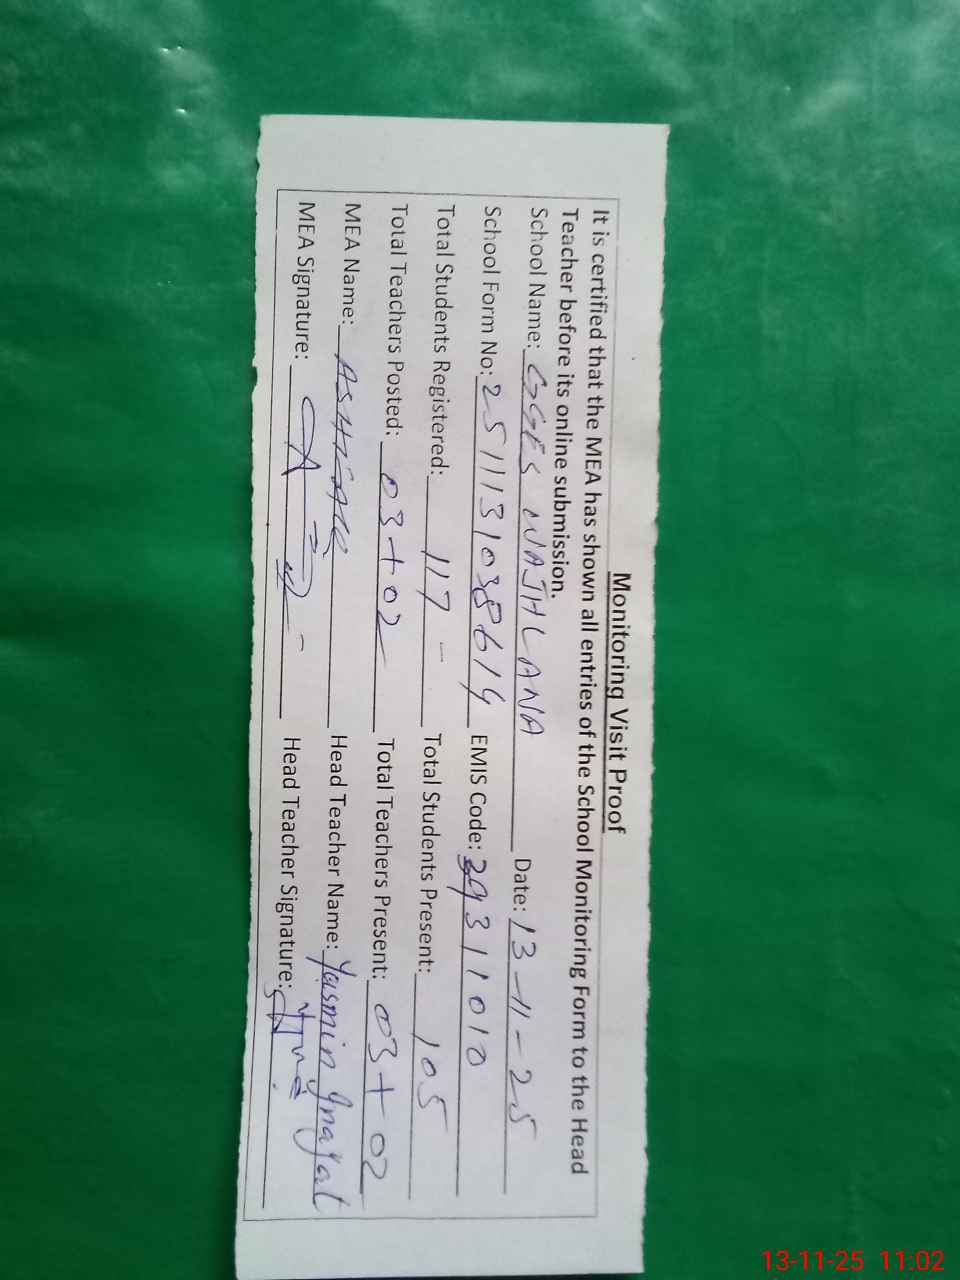 Monitoring Visit Proof
It is certified that the MEA has shown all entries of the School Monitoring Form to the Head
Teacher before its online submission.
School Name: GGES WAJHLANA Date: 13-11-25
School Form No: 2511131038614 EMIS Code: 39311010
Total Students Registered: 117 Total Students Present: 105
Total Teachers Posted: 03+02 Total Teachers Present: 03+02
MEA Name: ASHFAQ Head Teacher Name: Yasmin Ynayat
MEA Signature: Head Teacher Signature:
13-11-25 11:02